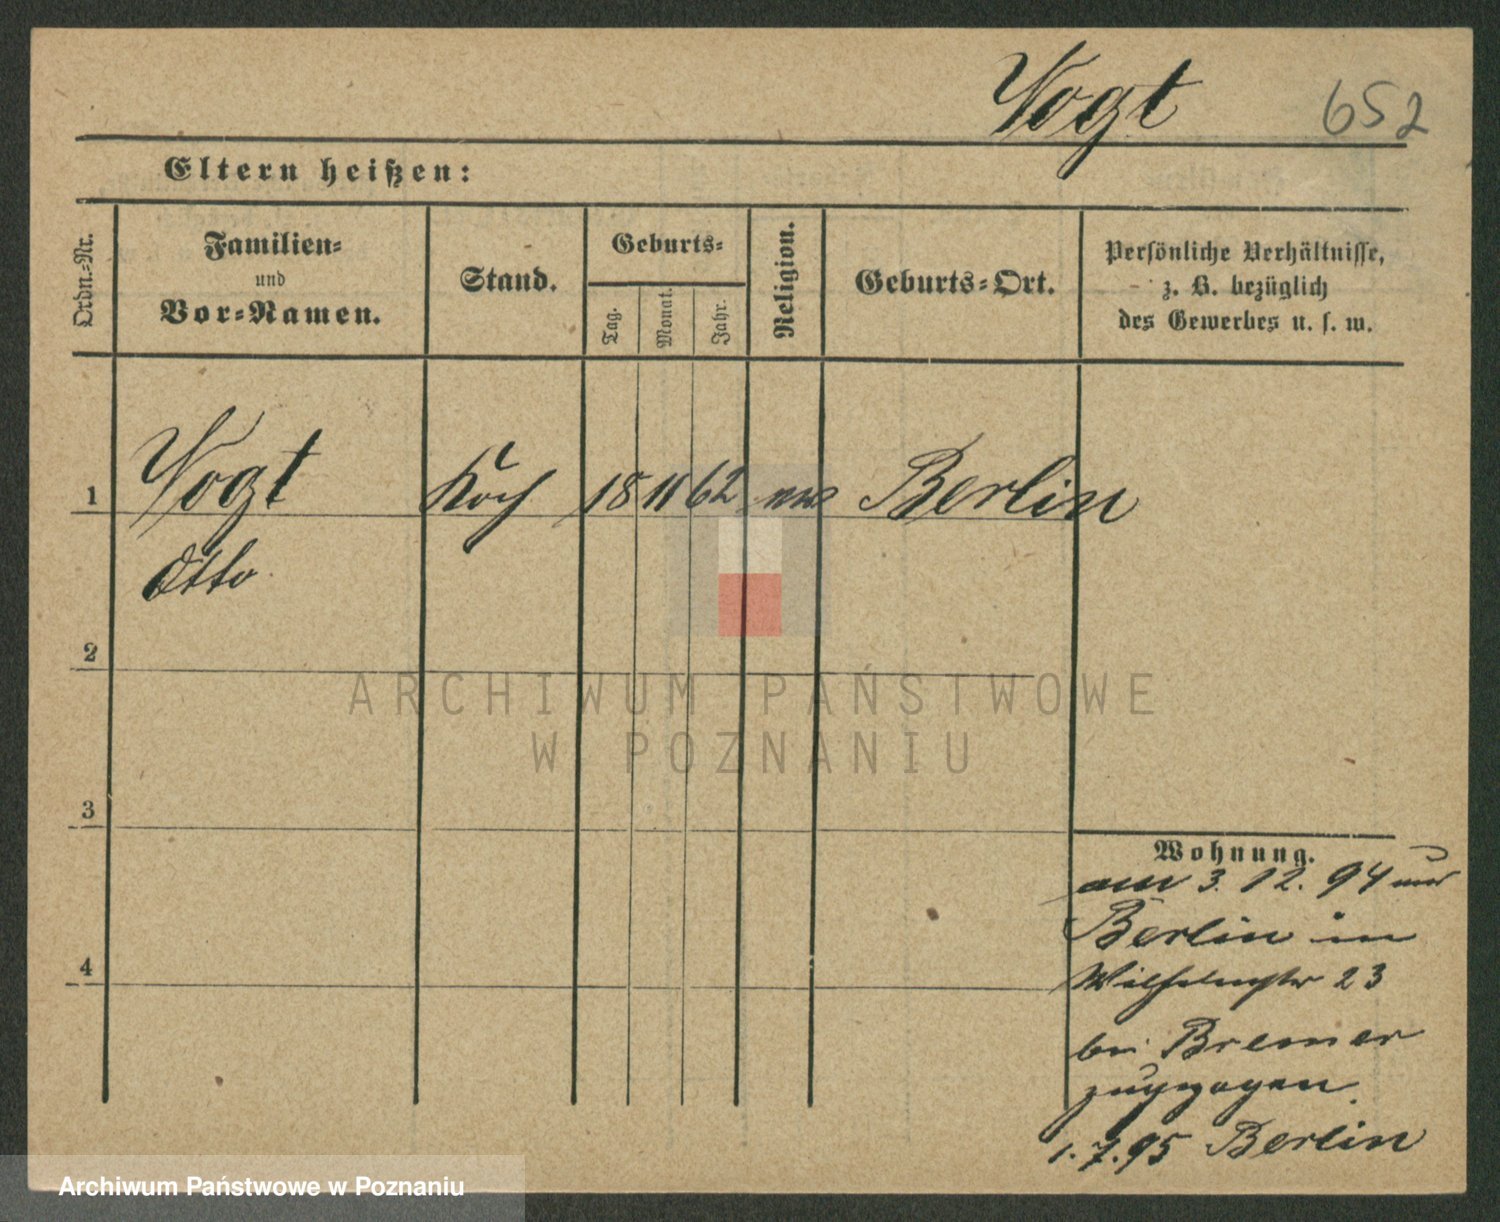 Vogt 652
Eltern heißen:
Ordn.=Nr.
Familien=
und
Vor=Namen.
Stand.
Geburts=
Tag.
Monat.
Jahr.
Religion.
Geburts=Ort.
Persönliche Verhältnisse,
z. B. bezüglich
des Gewerbes u. s. w.
1 Vogt Koch 18 11 62 Berlin
Otto
2
3
4
Wohnung.
am 3. 12. 94 von
Berlin in
Wilhelmstr 23
bei Bremer
zugezogen
1. 7. 95 Berlin
ARCHIWUM PAŃSTWOWE
W POZNANIU
Archiwum Państwowe w Poznaniu